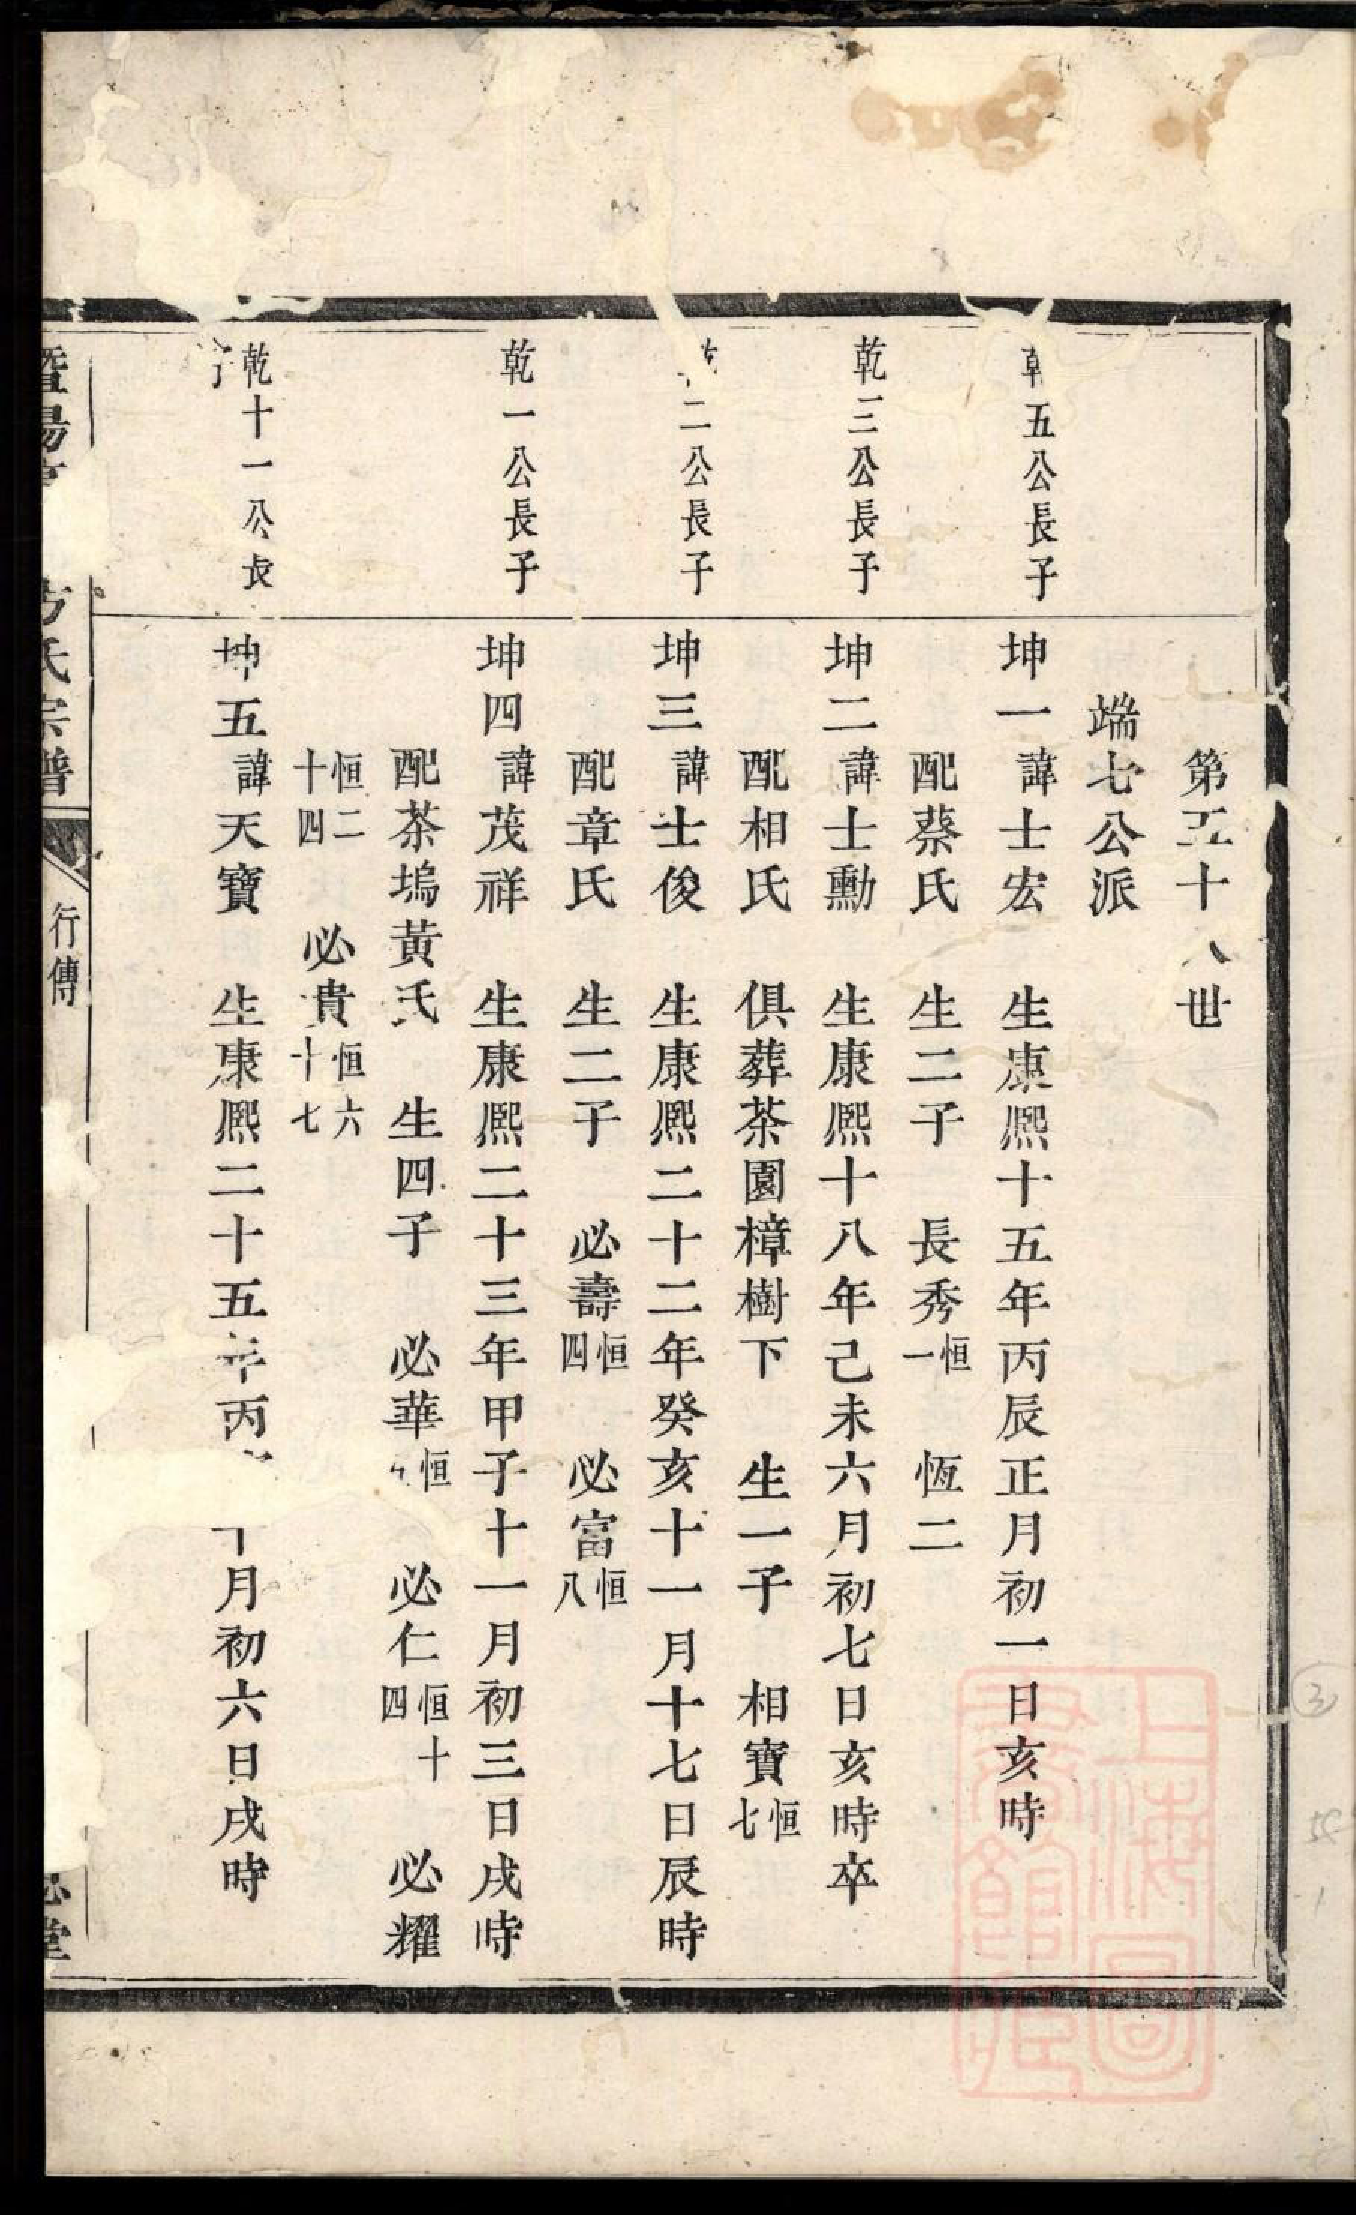 第五十八世
端七公派
乾五公長子
坤一 諱士宏 生康熙十五年丙辰正月初一日亥時
配蔡氏 生二子 長秀恒一 恆二
乾三公長子
坤二 諱士勳 生康熙十八年己未六月初七日亥時卒
配相氏 俱葬茶園樟樹下 生一子 相寶恒七
二公長子
坤三 諱士俊 生康熙二十二年癸亥十一月十七日辰時
配章氏 生二子 必壽恒四 必富恒八
乾一公長子
坤四 諱茂祥 生康熙二十三年甲子十一月初三日戌時
配茶塢黃氏 生四子 必華恒 必仁恒十四 必耀
恒二十四 必貴恒六十七
乾十一公長
子
坤五 諱天寶 生康熙二十五年丙 十月初六日戌時
暨陽 方氏宗譜
行傳
堂
上海圖書館藏